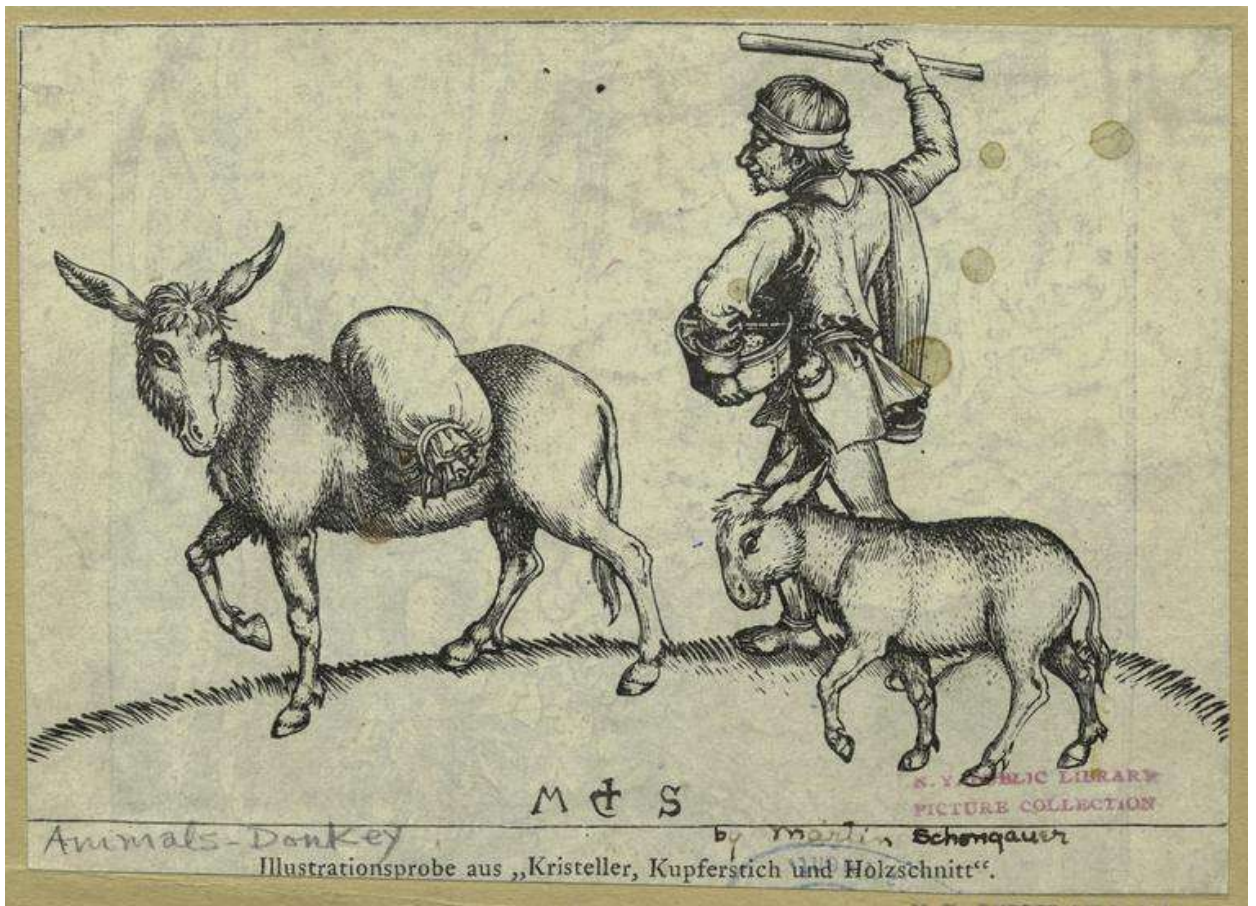 M S
N. Y. PUBLIC LIBRARY
PICTURE COLLECTION
Animals-Donkey
by Martin Schongauer
Illustrationsprobe aus „Kristeller, Kupferstich und Holzschnitt“.